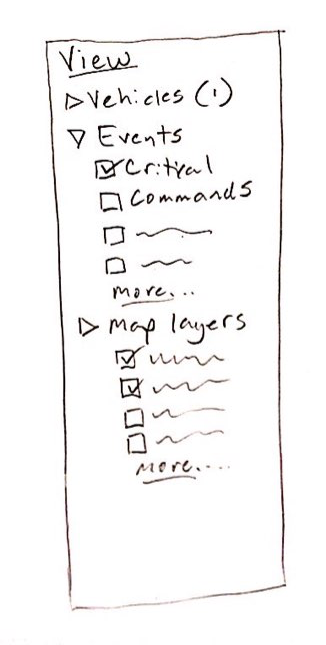 View
Vehicles (1)
Events
Critical
Commands
more...
Map layers
more....